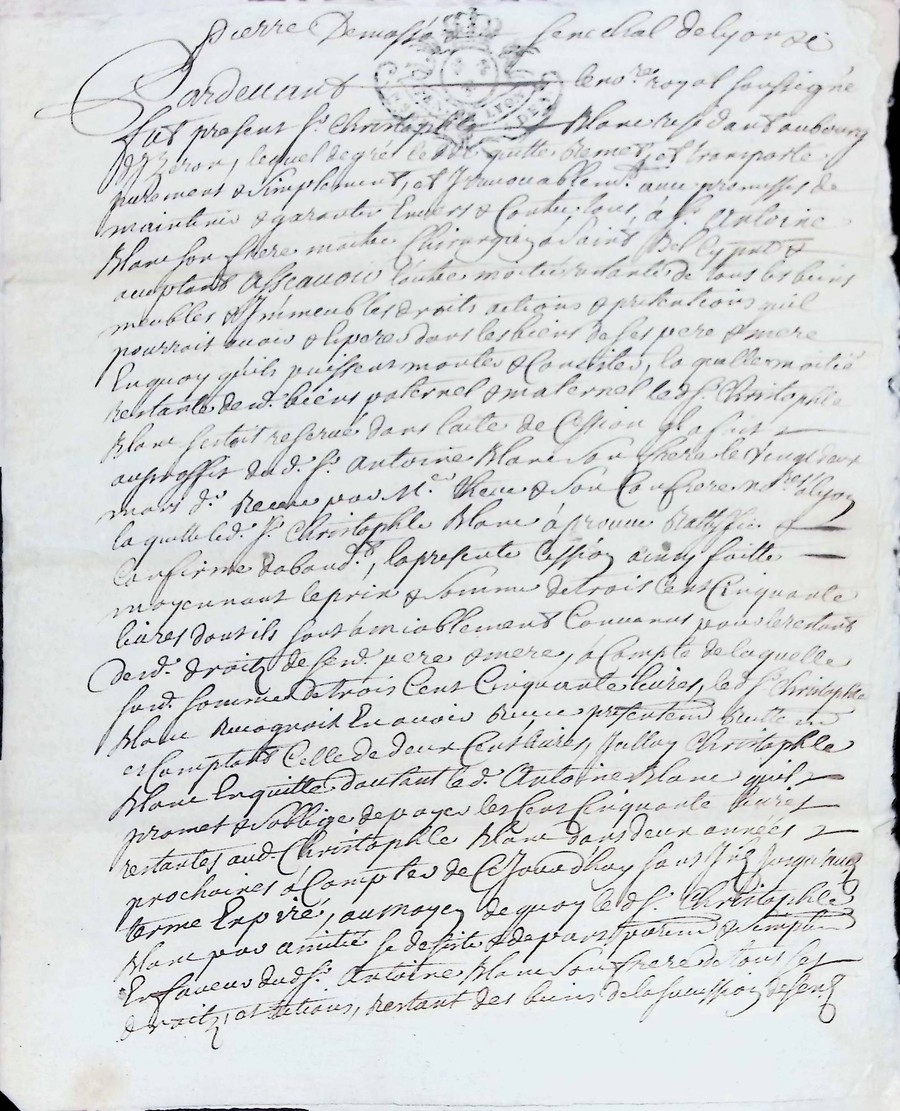 Pierre Demasso senechal de lyon &
Pardevant le no.re royal soussigné
fut present S.r Christophle Blanc residant au bourg
d'Yzeron, lequel de gré cede quitte Remet, et transporte
purement & simplement, et Irrevocablem.t avec promesses de
maintenir & garantir Envers & Contre tous, à S.r Antoine
Blanc son frere maitre Chirurgien à Saint Bel, y pnt &
acceptant Asscavoir l'autre moitié restante de tous les biens
meubles & Immeubles droits actions & pretentions quil
pourroit avoir & Esperer dans les biens de ses pere & mere
En quoy quils puissent monter & Consister, la quelle moitié
restante desd. biens paternel & maternel led. S.r Christophle
Blanc sestoit reservé dans lacte de Cession par luy fait
au proffit dud. S.r Antoine Blanc son frere le vingt deux
mars d.r Receu par M.e & son Confrere no.res à lyon
laquelle led. S.r Christophle Blanc approuve Rattiffie &
Confirme dabond.t, la presente Cession ainsy faitte
moyennant le prix & somme de trois Cent Cinquante
livres dont ils sont amiablement Convenus pour le restant
desd. droitz de sesd. pere & mere, à Compte de laquelle
susd. somme de trois Cent Cinquante livres, led. S.r Christophle
Blanc Recognoit En avoir Receu presentem.t
et Comptant Celle de deux Cent livres, Christophle
Blanc En quitte dautant led. Antoine Blanc quil
promet & soblige de payer les Cent Cinquante livres
restantes aud. Christophle Blanc dans deux années
prochaines à Compter de Cejourdhuy sans Jusquaud.
terme Expiré, au moyen de quoy led. S.r Christophle
Blanc par amitié se desiste & depart purem.t & simplem.t
En faveur dud. S.r Antoine Blanc son frere de tous ses
droitz, et actions, restant des biens de la succession de sesd.